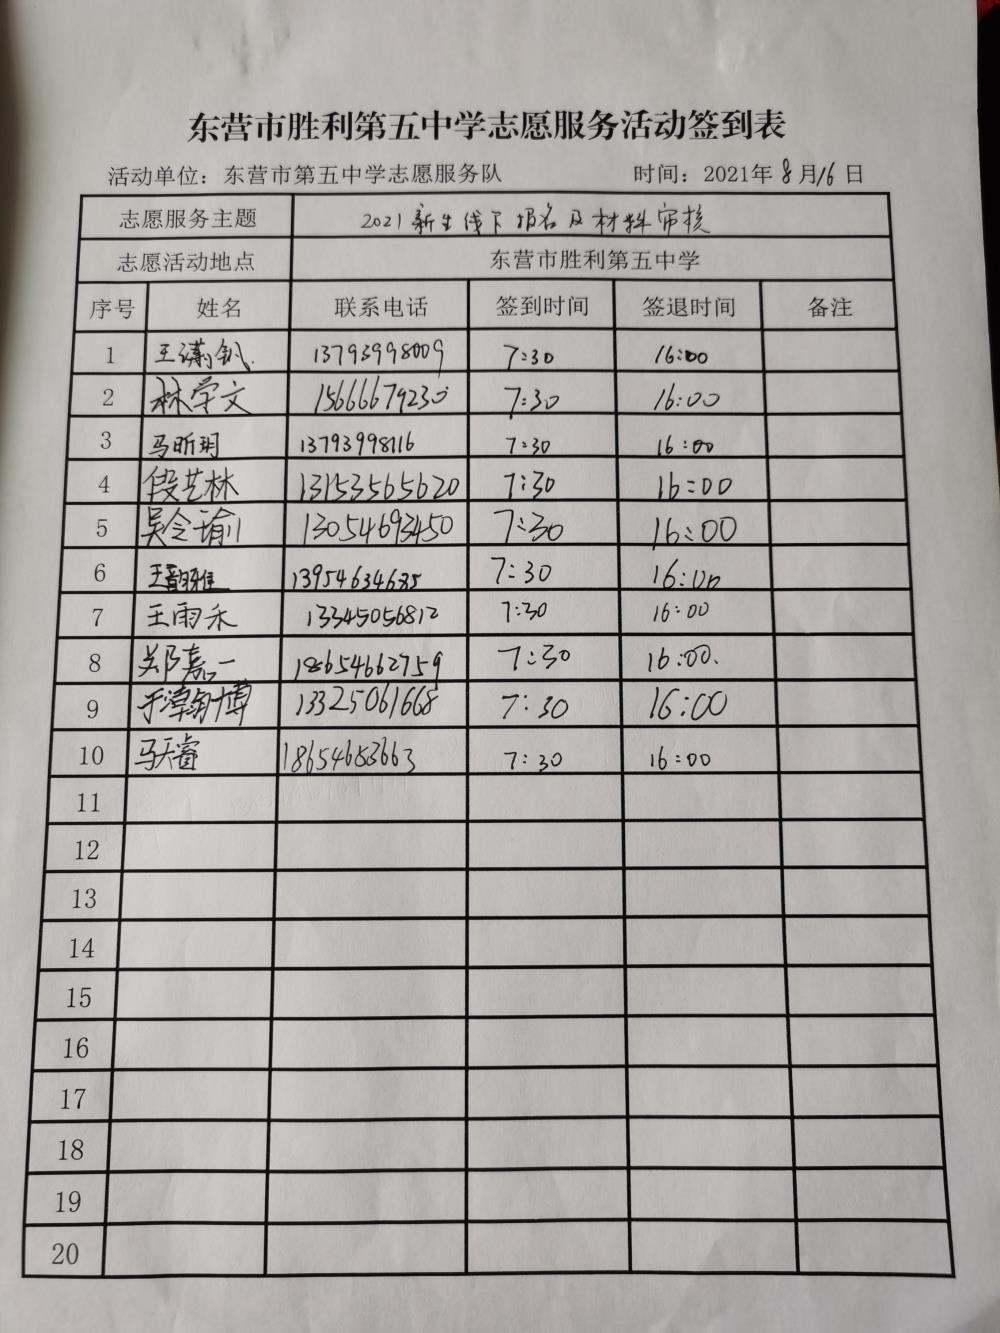 东营市胜利第五中学志愿服务活动签到表
活动单位：东营市第五中学志愿服务队 时间：2021年8月16日
志愿服务主题 2021新生线下报名及材料审核
志愿活动地点 东营市胜利第五中学
序号 姓名 联系电话 签到时间 签退时间 备注
1 王潇 13793998009 7:30 16:00
2 林学文 15666679230 7:30 16:00
3 马昕玥 13793998116 7:30 16:00
4 段艺林 13153565620 7:30 16:00
5 吴令瑜 13054693450 7:30 16:00
6 王 雅 13954634635 7:30 16:00
7 王雨禾 13345056812 7:30 16:00
8 郑嘉一 18654662759 7:30 16:00.
9 于漳翰博 13325061668 7:30 16:00
10 马天睿 18654683663 7:30 16:00
11
12
13
14
15
16
17
18
19
20